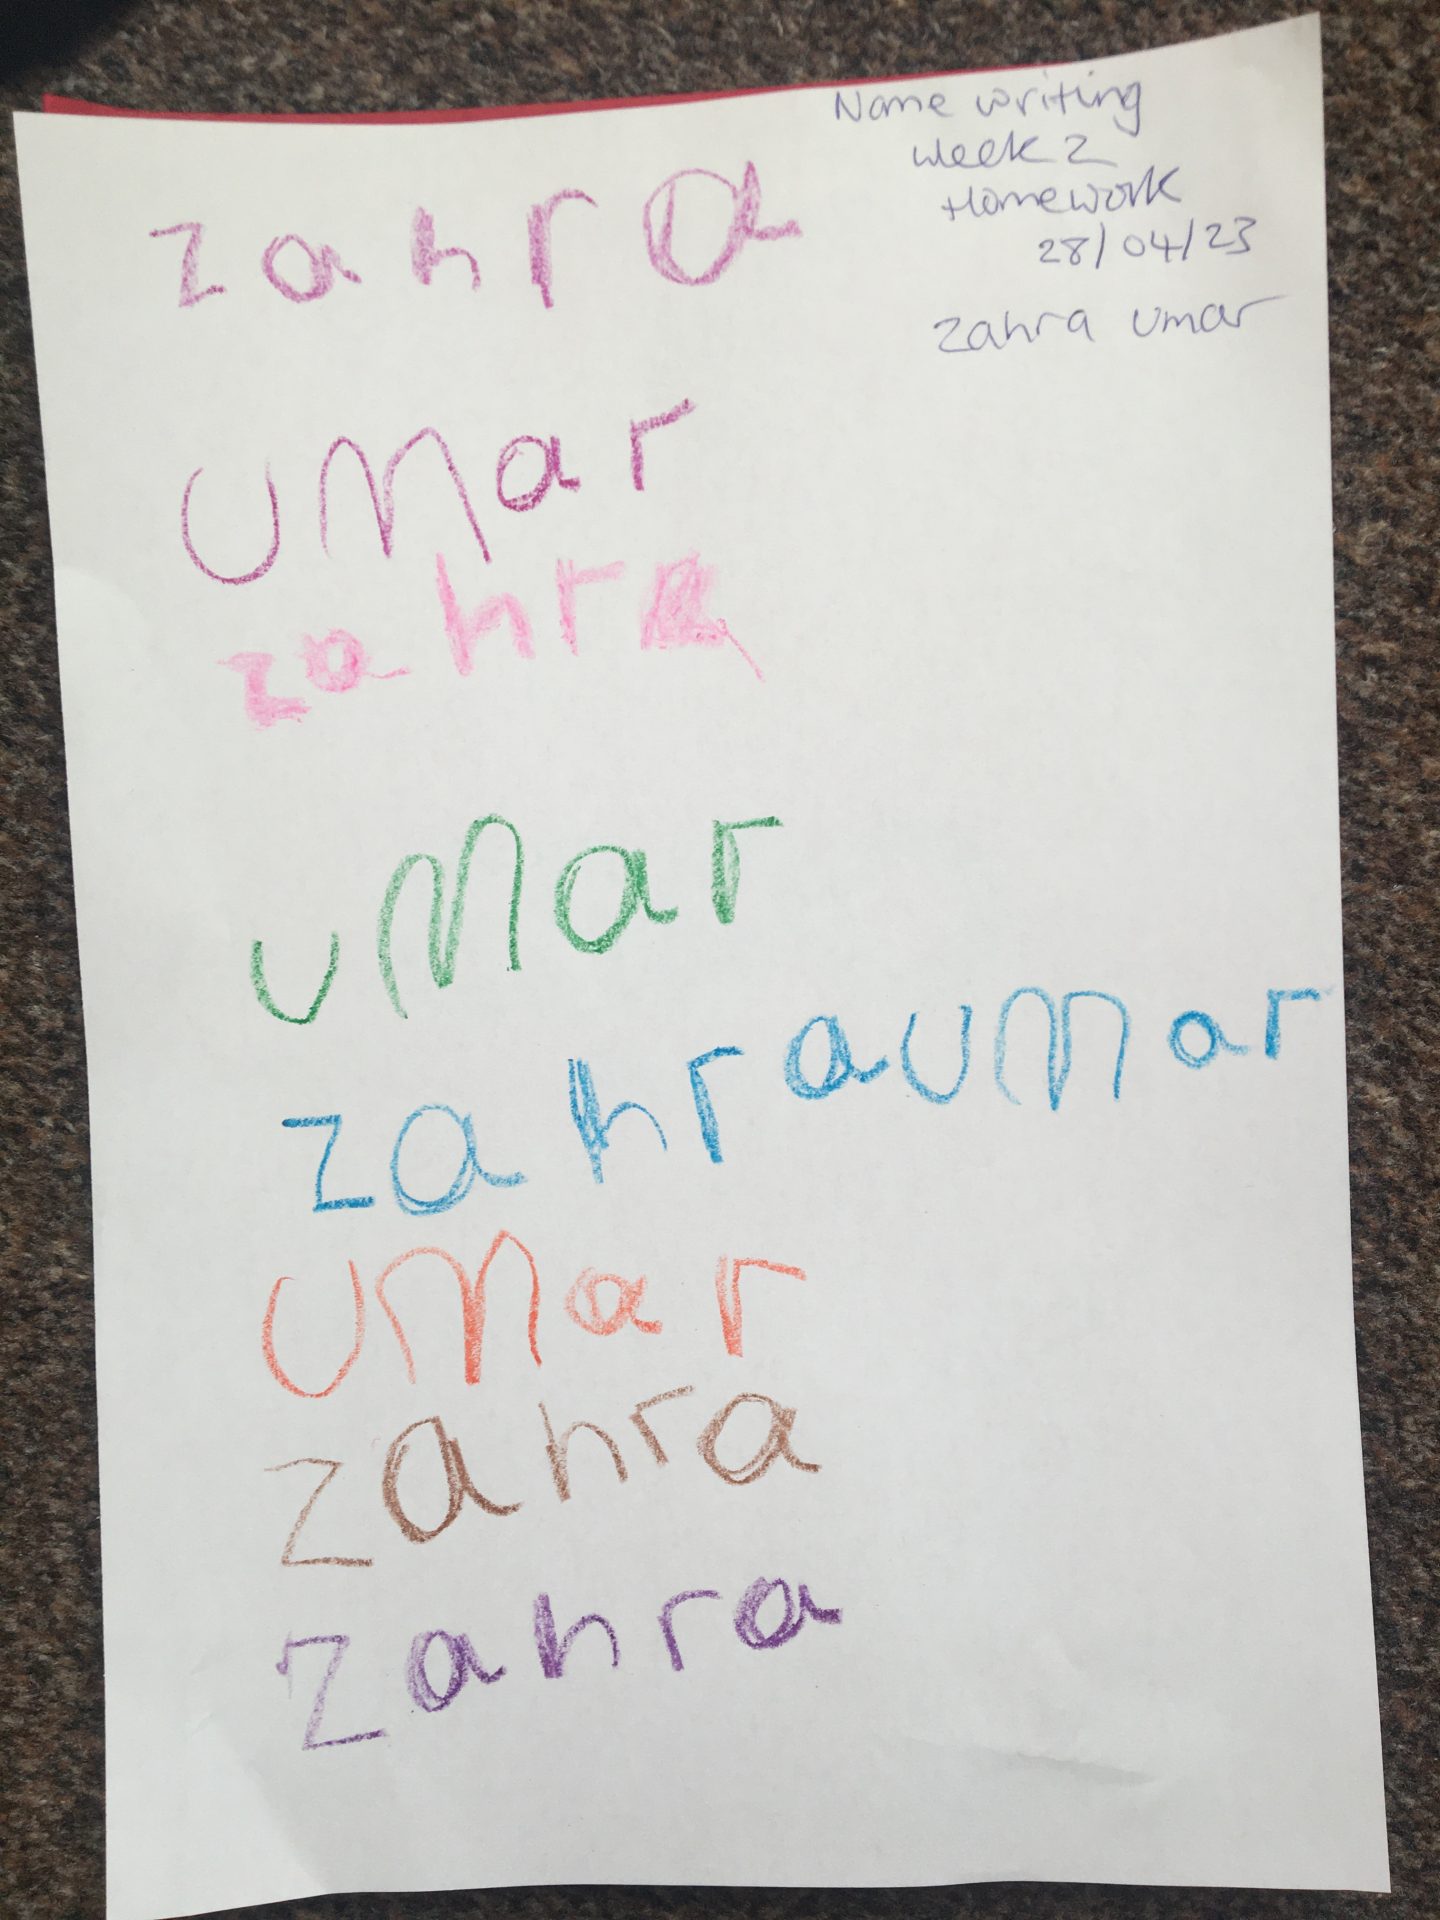 Name writing
week 2
Homework
28/04/23
Zahra Umar
zahra
umar
zahra
umar
zahraumar
umar
zahra
zahra